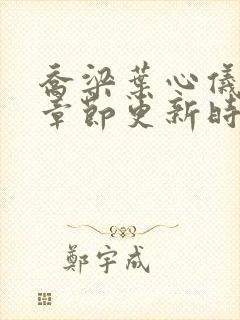 喬梁葉心儀
章節更新時
鄭宇成